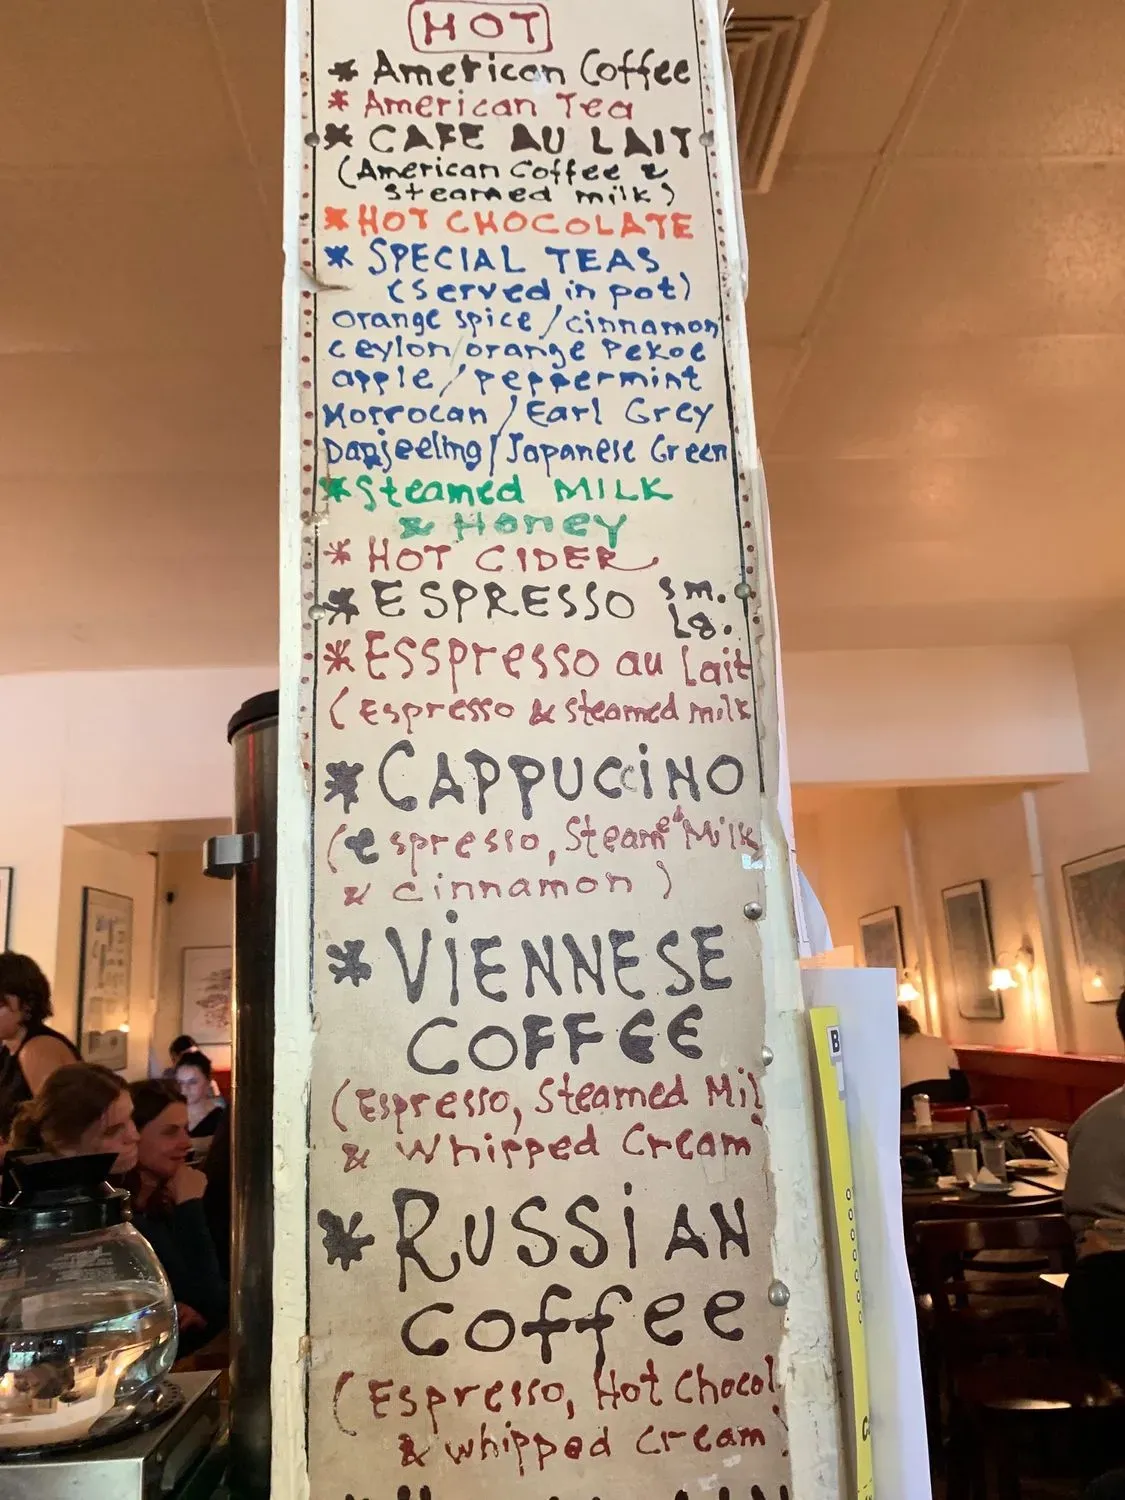 HOT
* American Coffee
* American Tea
* CAFE AU LAIT
(American Coffee &
steamed milk)
* HOT CHOCOLATE
* SPECIAL TEAS
(served in pot)
orange spice / cinnamon
ceylon / orange Pekoe
apple / peppermint
Morrocan / Earl Grey
Darjeeling / Japanese Green
* Steamed MILK
& Honey
* HOT CIDER
* ESPRESSO sm.
Lg.
* ESspresso au Lait
(Espresso & steamed milk
* CAPPUCCiNO
(espresso, Steamed Milk
& cinnamon)
* ViENNESE
COFFEE
(Espresso, Steamed Mil
& Whipped Cream
* RUSSiAN
Coffee
(Espresso, Hot Chocol
& whipped cream)
B